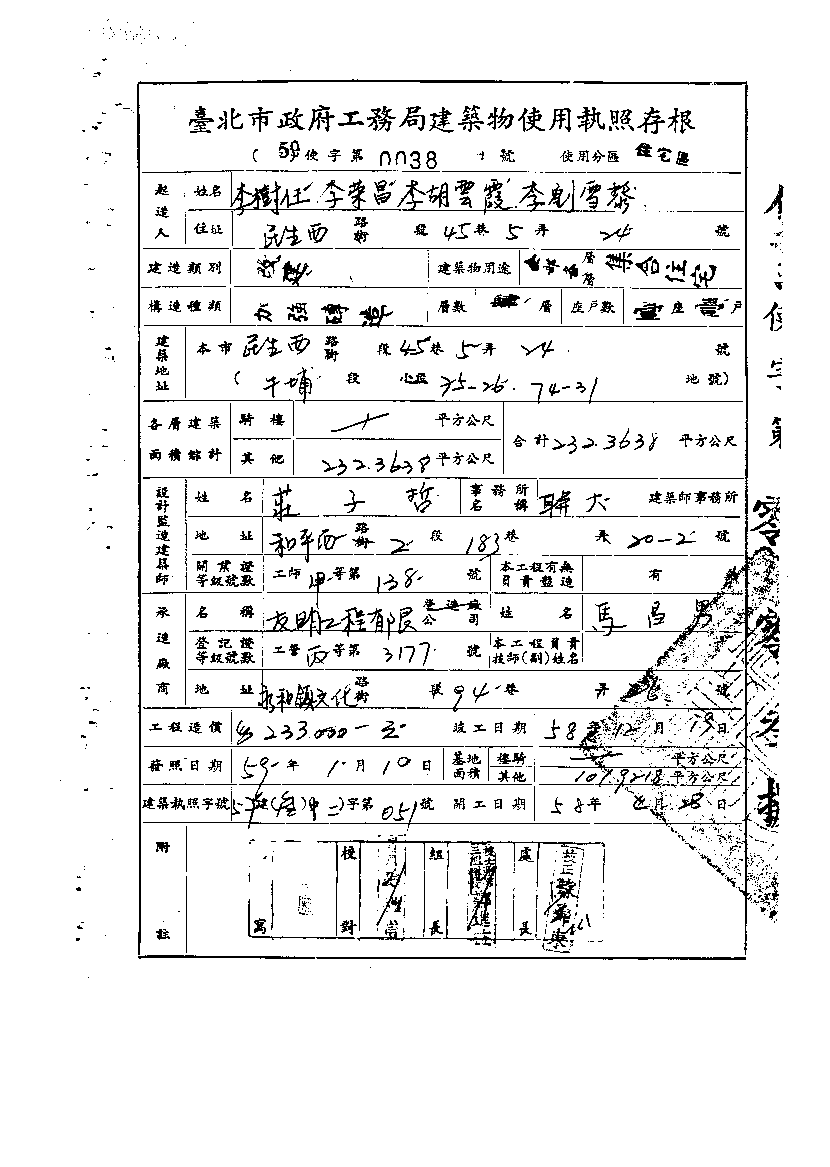 臺北市政府工務局建築物使用執照存根
( 59 使字第 0038 號 使用分區 住宅區
起造人 姓名 李樹任 李荣昌 李胡雲霞 李劉雪
住址 民生西 路街 段 45 巷 5 弄 24 號
建造類別 建築物用途 層 集合住宅
構造種類 加強磚造 層數 層 座戶數 壹 座 戶
建築地址 本市 民生西 路街 段 45 巷 5 弄 24 號
( 牛埔 段 小段 35-26 74-31 地號)
各層建築面積總計 騎樓 平方公尺 合計 232.3638 平方公尺
其他 232.3638 平方公尺
設計監造建築師 姓名 莊子哲 事務所名稱 聯大 建築師事務所
地址 和平西 路街 2 段 183 巷 弄 20-2 號
開業證等級號數 工師 甲 等第 138 號 本工程有無負責監造 有
承造廠商 名稱 友明工程有限 營造廠公司 姓名 馬昌男
登記證等級號數 工營 丙 等第 3177 號 本工程負責技師(副)姓名
地址 永和鎮文化 路街 段 94 巷 弄 號
工程造價 233000 元 竣工日期 58 年 12 月 19 日
發照日期 59 年 1 月 10 日 基地面積 騎樓 平方公尺
其他 107.9218 平方公尺
建築執照字號 建( )字第 051 號 開工日期 58 年 月 28 日
附註 寫 校對 組長 處長